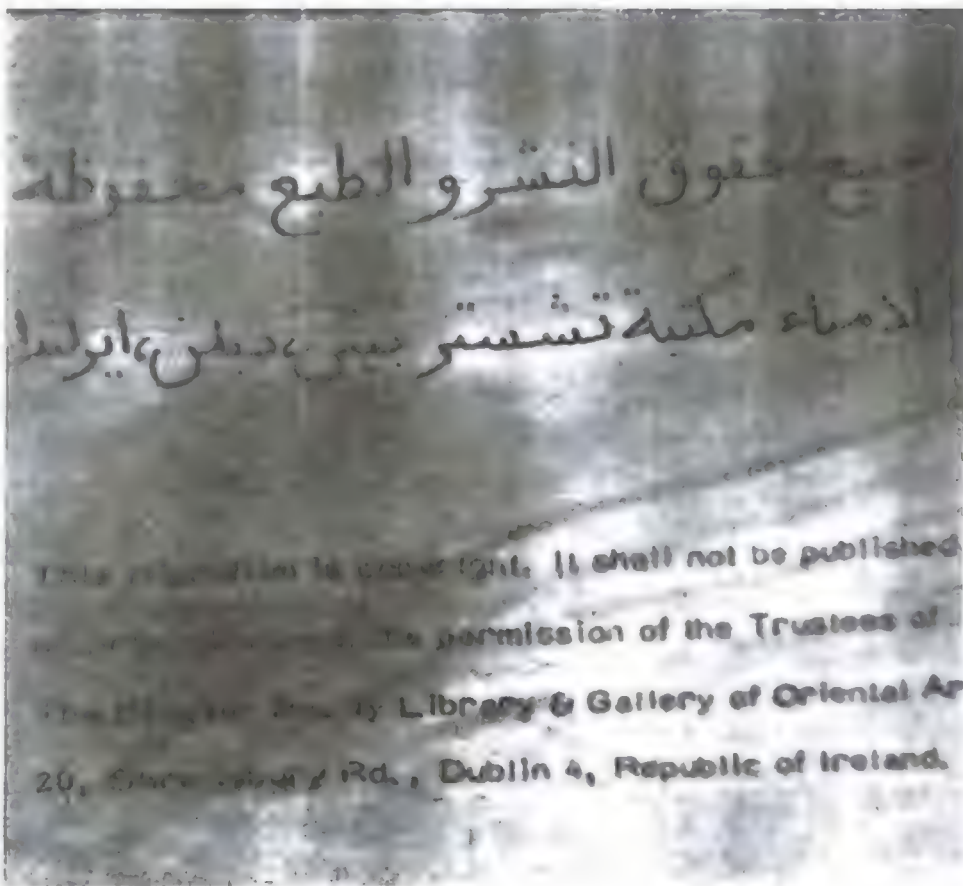 جميع حقوق النشر و الطبع محفوظة
لأمناء مكتبة تشستر بيتي، دبلن، ايرلندا
This microfilm is copyright. It shall not be published
permission of the Trustees of
The Chester Beatty Library & Gallery of Oriental Ar
20, Rd., Dublin 4, Republic of Ireland.